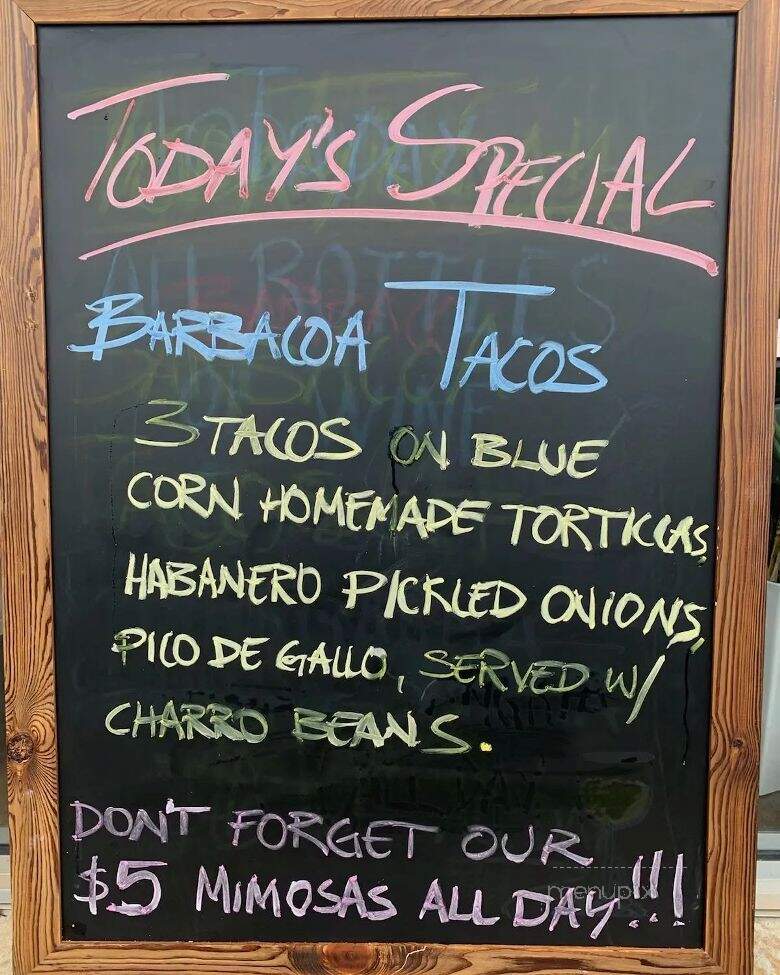 TODAY'S SPECIAL
BARBACOA TACOS
3 TACOS ON BLUE
CORN HOMEMADE TORTILLAS,
HABANERO PICKLED ONIONS,
PICO DE GALLO, SERVED W/
CHARRO BEANS.
DON'T FORGET OUR
$5 MIMOSAS ALL DAY!!!
menupix